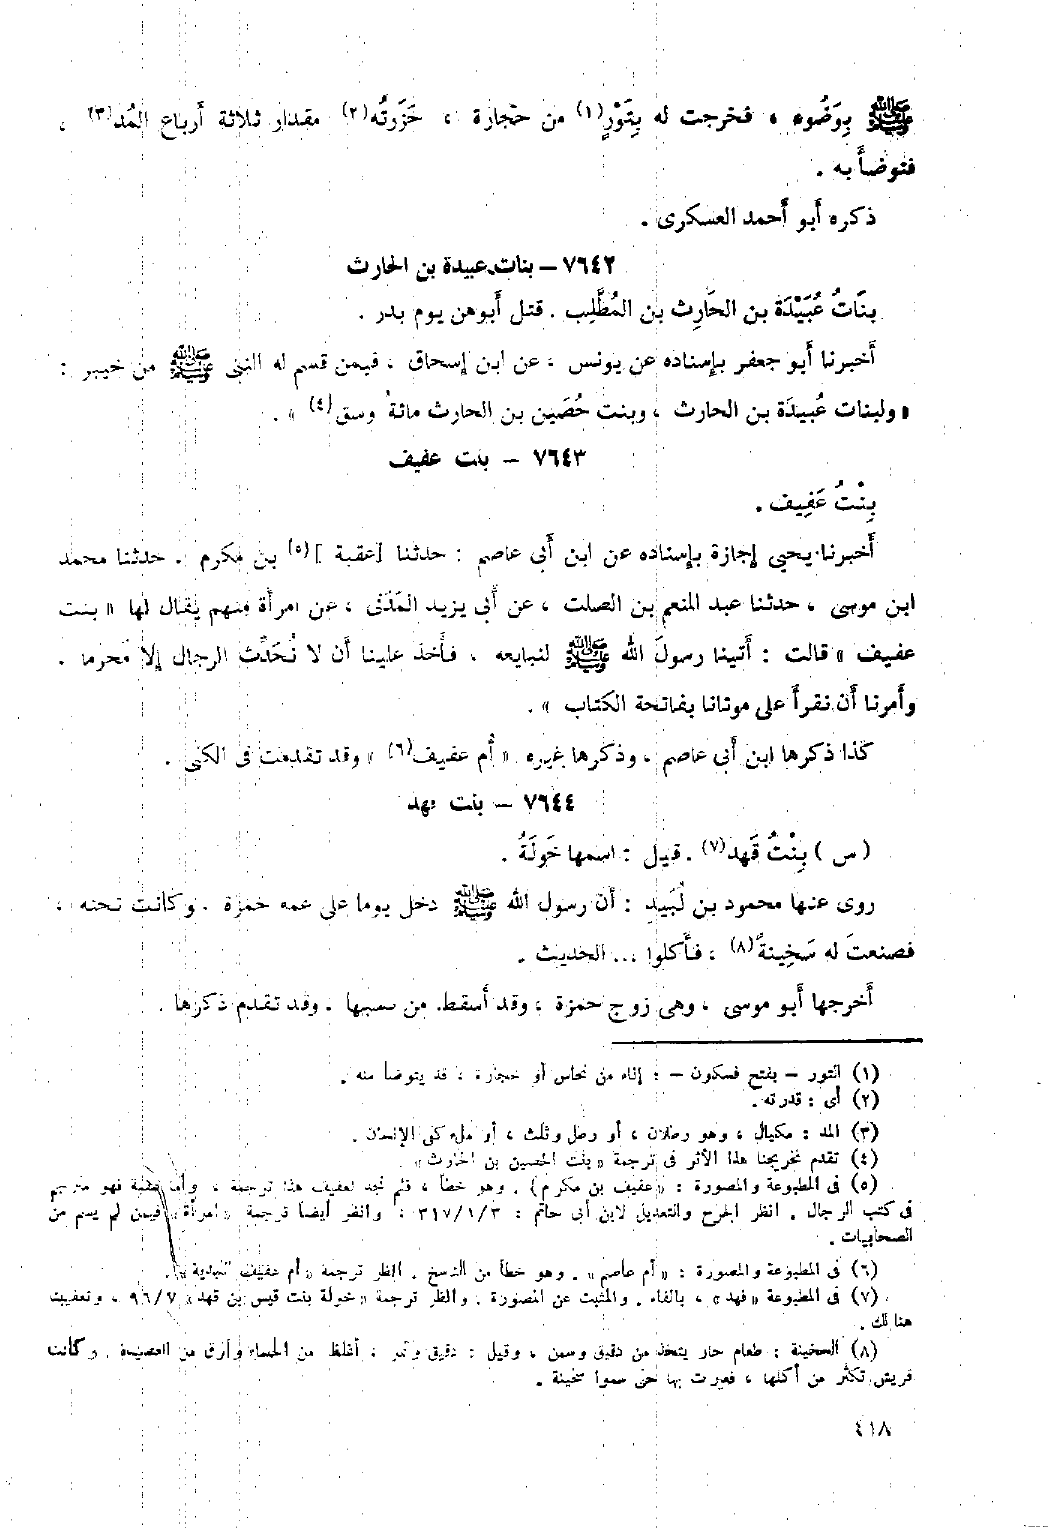 ﷺ بِوَضُوء ، فخرجت له بِتَوْرٍ(١) من حجارة ، حَزَرتُه(٢) مقدار ثلاثة أَرباع المُد(٣) ،
فتوضأَ به .
ذكره أَبو أَحمد العسكرى .
٧٦٤٢ – بنات عبيدة بن الحارث
بنَاتُ عُبَيْدَة بن الحَارِث بن المُطَّلِب . قتل أَبوهن يوم بدر .
أَخبرنا أَبو جعفر بإسناده عن يونس ، عن ابن إسحاق ، فيمن قسم له النبى ﷺ من خيبر :
« ولبنات عُبيدَة بن الحارث ، وبنت حُصَين بن الحارث مائة وسق(٤) » .
٧٦٤٣ – بنت عفيف
بِنْتُ عَفِيف .
أَخبرنا يحيى إجازة بإسناده عن ابن أَبى عاصم : حدثنا [عقبة ](٥) بن مكرم . حدثنا محمد
ابن موسى ، حدثنا عبد المنعم بن الصلت ، عن أَبى يزيد المَدَنى ، عن امرأَة منهم يقال لها « بنت
عفيف » قالت : أَتينا رسولَ الله ﷺ لنبايعه ، فأَخذ علينا أَن لا نُحَدِّث الرجال إلا مَحرما .
وأَمرنا أَن نقرأَ على موتانا بفاتحة الكتاب » .
كذا ذكرها ابن أَبى عاصم ، وذكرها غيره « أُم عفيف(٦) » وقد تقدمت فى الكنى .
٧٦٤٤ – بنت قهد
(س) بِنْتُ قَهد(٧) . قيل : اسمها خَولَةُ .
روى عنها محمود بن لُبَيدِ : أَن رسول الله ﷺ دخل يوما على عمه حمزة . وكانت تحته ،
فصنعت له سَخِينةً(٨) ، فأَكلوا ... الحديث .
أَخرجها أَبو موسى ، وهى زوج حمزة ، وقد أَسقط من نسبها . وقد تقدم ذكرها .
(١) التور – بفتح فسكون – : إناء من نحاس أو حجارة ، قد يتوضأ منه .
(٢) أى : قدرته .
(٣) المد : مكيال ، وهو رطلان ، أو رطل وثلث ، أو ملء كفى الإنسان .
(٤) تقدم تخريجنا هذا الأثر فى ترجمة « بنت الحصين بن الحارث » .
(٥) فى المطبوعة والمصورة : « (عفيف بن مكرم) . وهو خطأ ، فلم نجد لعفيف هذا ترجمة ، وأما عقبة فهو مترجم
فى كتب الرجال . انظر الجرح والتعديل لابن أبى حاتم : ٣١٧/١/٣ . وانظر أيضا ترجمة « امرأة » فيمن لم يسم من
الصحابيات .
(٦) فى المطبوعة والمصورة : « أم عاصم » . وهو خطأ من النسخ . انظر ترجمة « أم عفيف النهدية » .
(٧) فى المطبوعة « فهد » ، بالفاء . والمثبت عن المصورة . وانظر ترجمة « خولة بنت قيس بن قهد » ٩٦/٧ ، وتعقيبنا
هنالك .
(٨) السخينة : طعام حار يتخذ من دقيق وسمن ، وقيل : دقيق وتمر ، أغلظ من الحساء وأرق من العصيدة . وكانت
قريش تكثر من أكلها ، فعيرت بها حتى سموا سخينة .
٤١٨